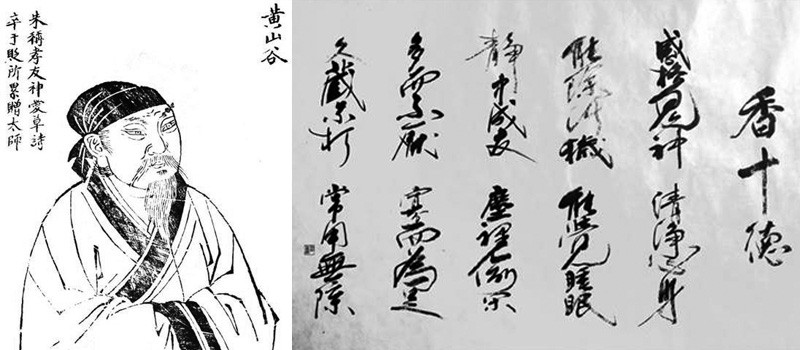 黄山谷
朱稱孝友神愛草詩
卒于貶所累贈太師
香十德
感格鬼神 清淨心身
能除汚穢 能覺睡眠
静中成友 塵裡偷閑
多而不厭 寡而為足
久蔵不朽 常用無障